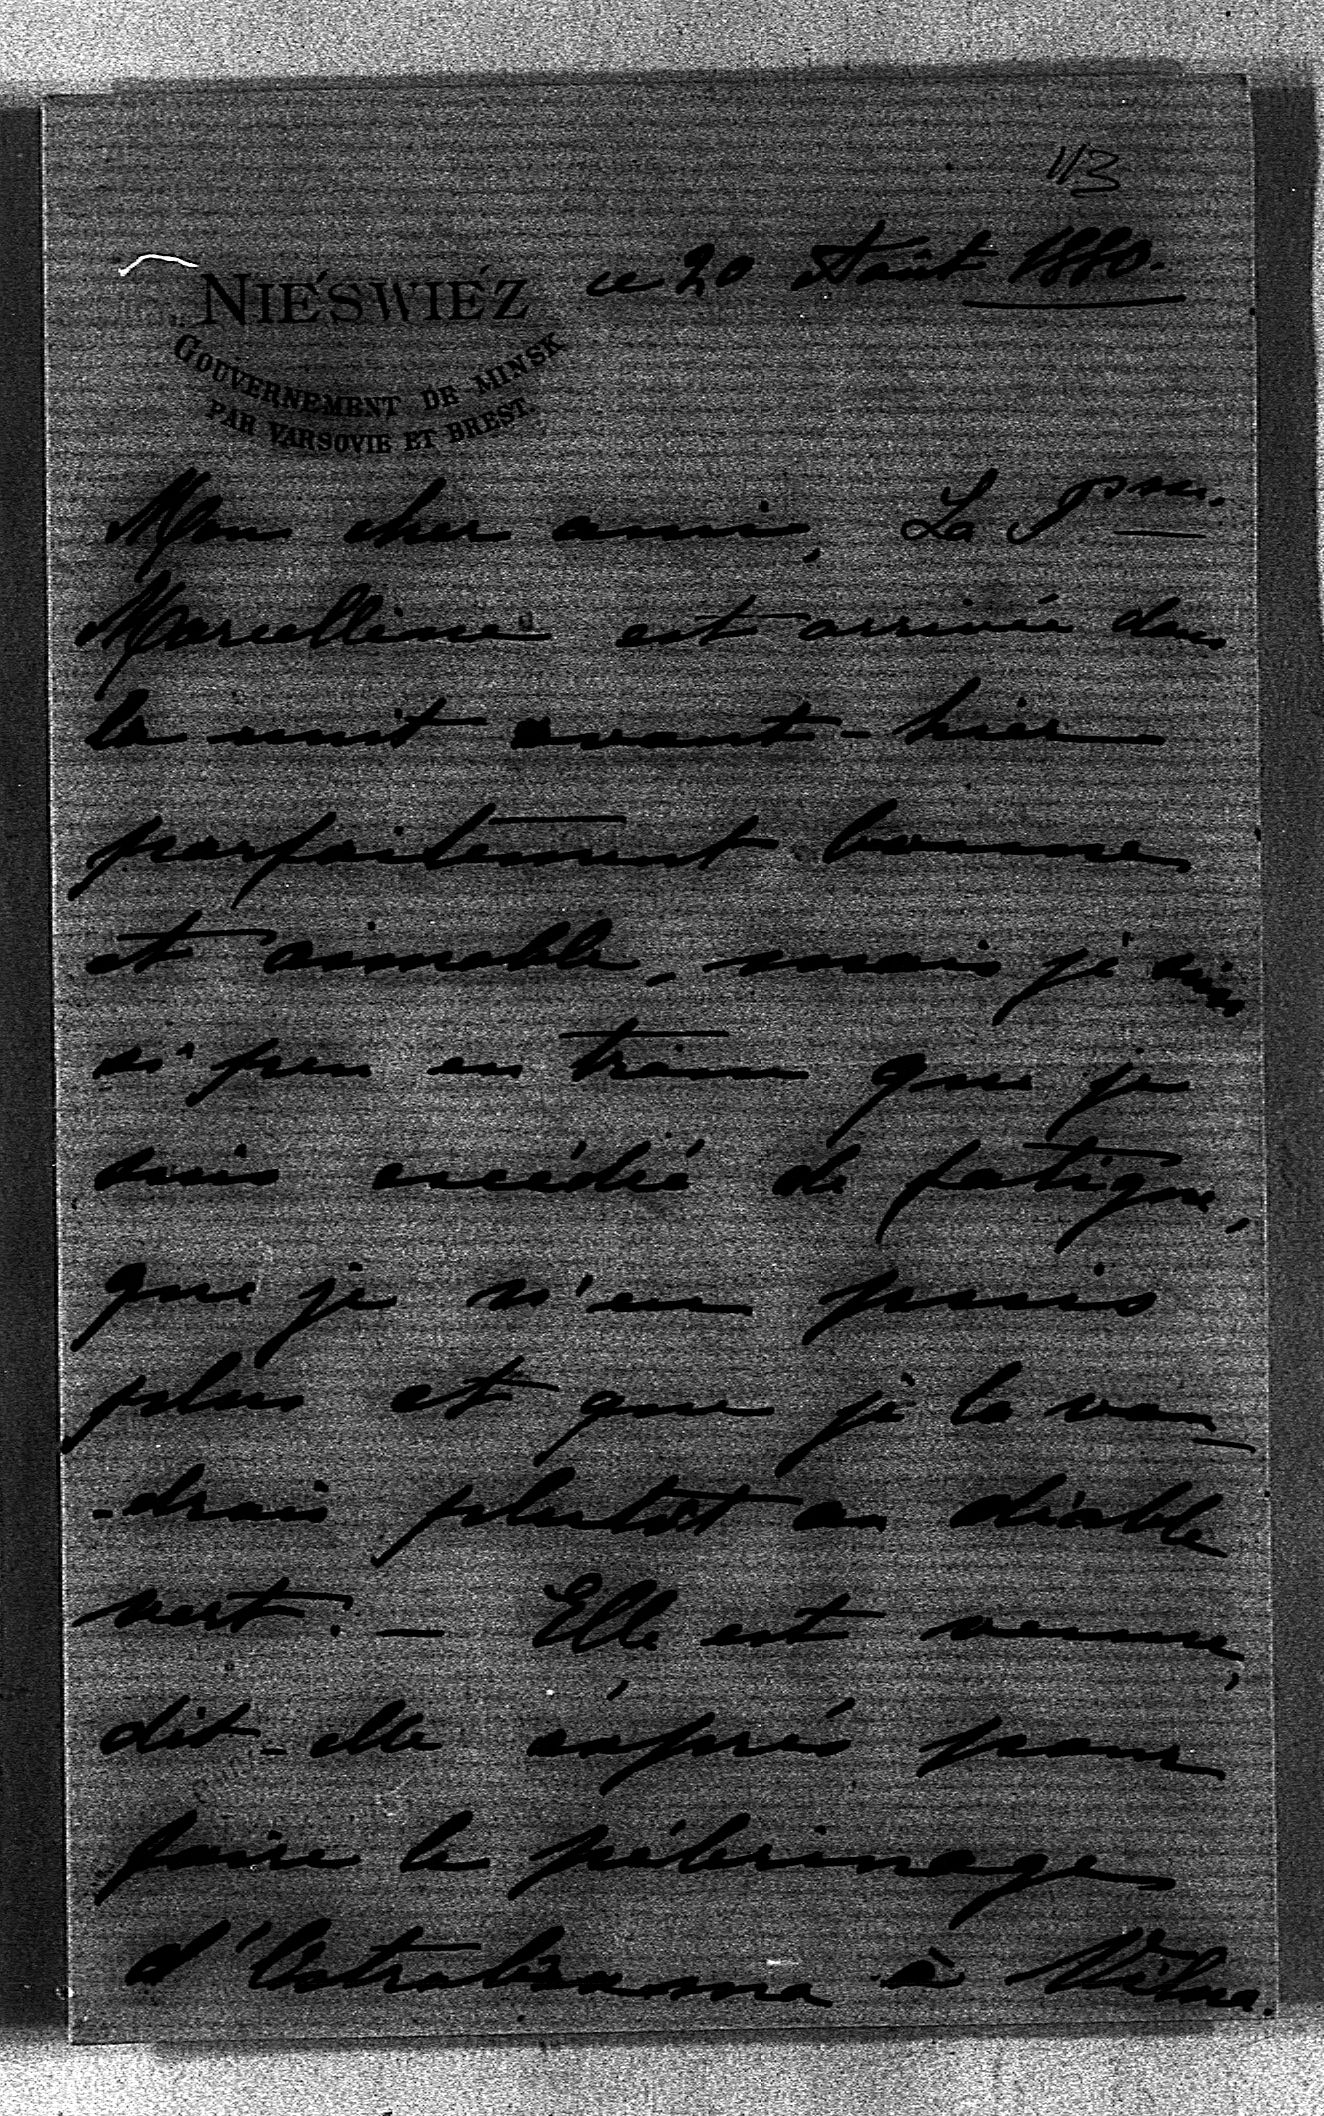 113
NIEŚWIEŻ
ce 20 Août 1880.
GOUVERNEMENT DE MINSK
PAR VARSOVIE ET BREST.
Mon cher ami, La Psse
Marcelline est arrivée dans
la nuit avant-hier
parfaitement bonne
et aimable, mais je suis
si peu en train que je
suis excédé de fatigue,
que je n'en puis
plus et que je la ven-
-drais plutôt au diable
vert. — Elle est venue,
dit-elle exprès pour
faire le pélerinage
d'Ostrabrama à Wilna.